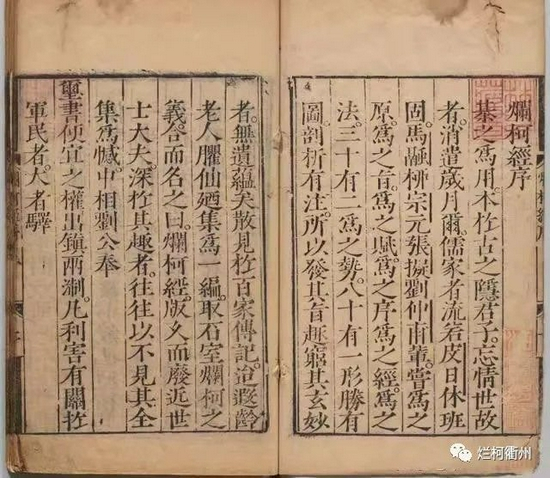 爛柯經序
棊之爲用。本扵古之隱君子。忘情世故
者。消遣歲月爾。儒家者流。若皮日休班
固。馬融柳宗元張擬劉仲甫軰。嘗爲之
原。爲之旨。爲之賦。爲之序。爲之經。爲之
法。三十有二爲之勢。八十有一形勝有
圖。剖析有注。所以發其旨趣。窮其玄妙
者。無遺蘊矣。散見扵百家傳記。迨遐齡
老人臞仙廼集爲一編。取石室爛柯之
義。而名之曰。爛柯經。版久而廢。近世
士大夫。深扵其趣者。往往以不見其全
集爲憾。中相劉公奉
璽書便宜之權。出鎮兩浙。凡利害有關扵
軍民者。大者驛
烂柯衢州